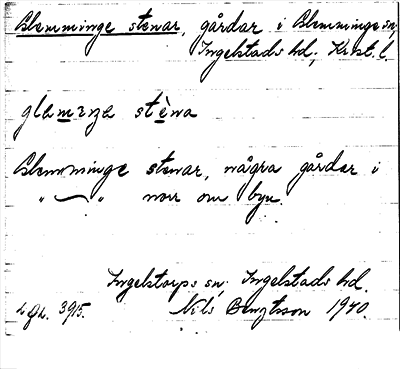 Glemminge stenar, gårdar i Glemminge sn,
Ingelstads hd, Krist. l.
glemiŋa stèna
Glemminge stenar, några gårdar i
" — " norr om byn.
Ingelstorps sn, Ingelstads hd.
3915. Nils Bengtsson 1940.